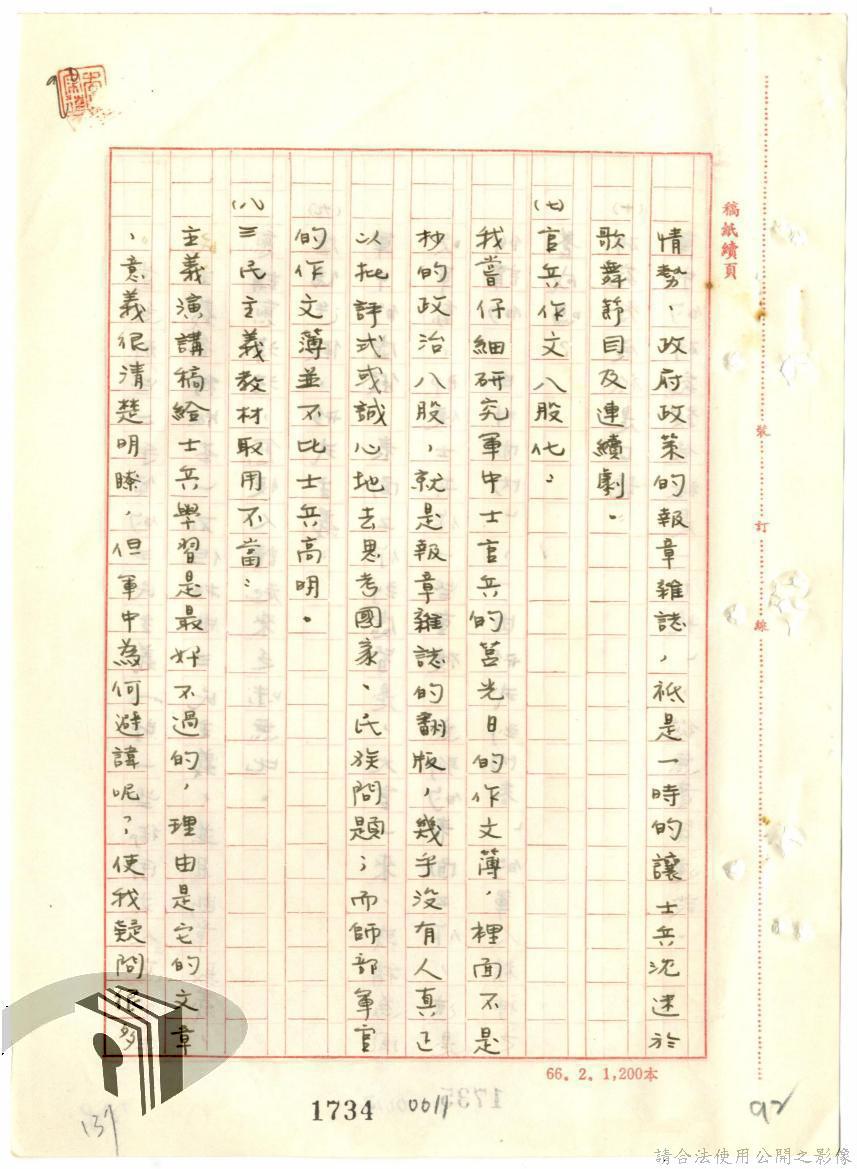 稿紙續頁
裝
訂
線
情勢、政府政策的報章雜誌，祇是一時的讓士兵沈迷於
歌舞節目及連續劇。
(七)官兵作文八股化：
我嘗仔細研究軍中士官兵的莒光日的作文簿，裡面不是
抄的政治八股，就是報章雜誌的翻版，幾乎沒有人真正
以批評式或誠心地去思考國家、民族問題；而師部軍官
的作文簿並不比士兵高明。
(八)三民主義教材取用不當：
主義演講稿給士兵學習是最好不過的，理由是它的文章
、意義很清楚明瞭，但軍中為何避諱呢？使我疑問很多
66. 2. 1,200本
1734
0611
137
92
請合法使用公開之影像